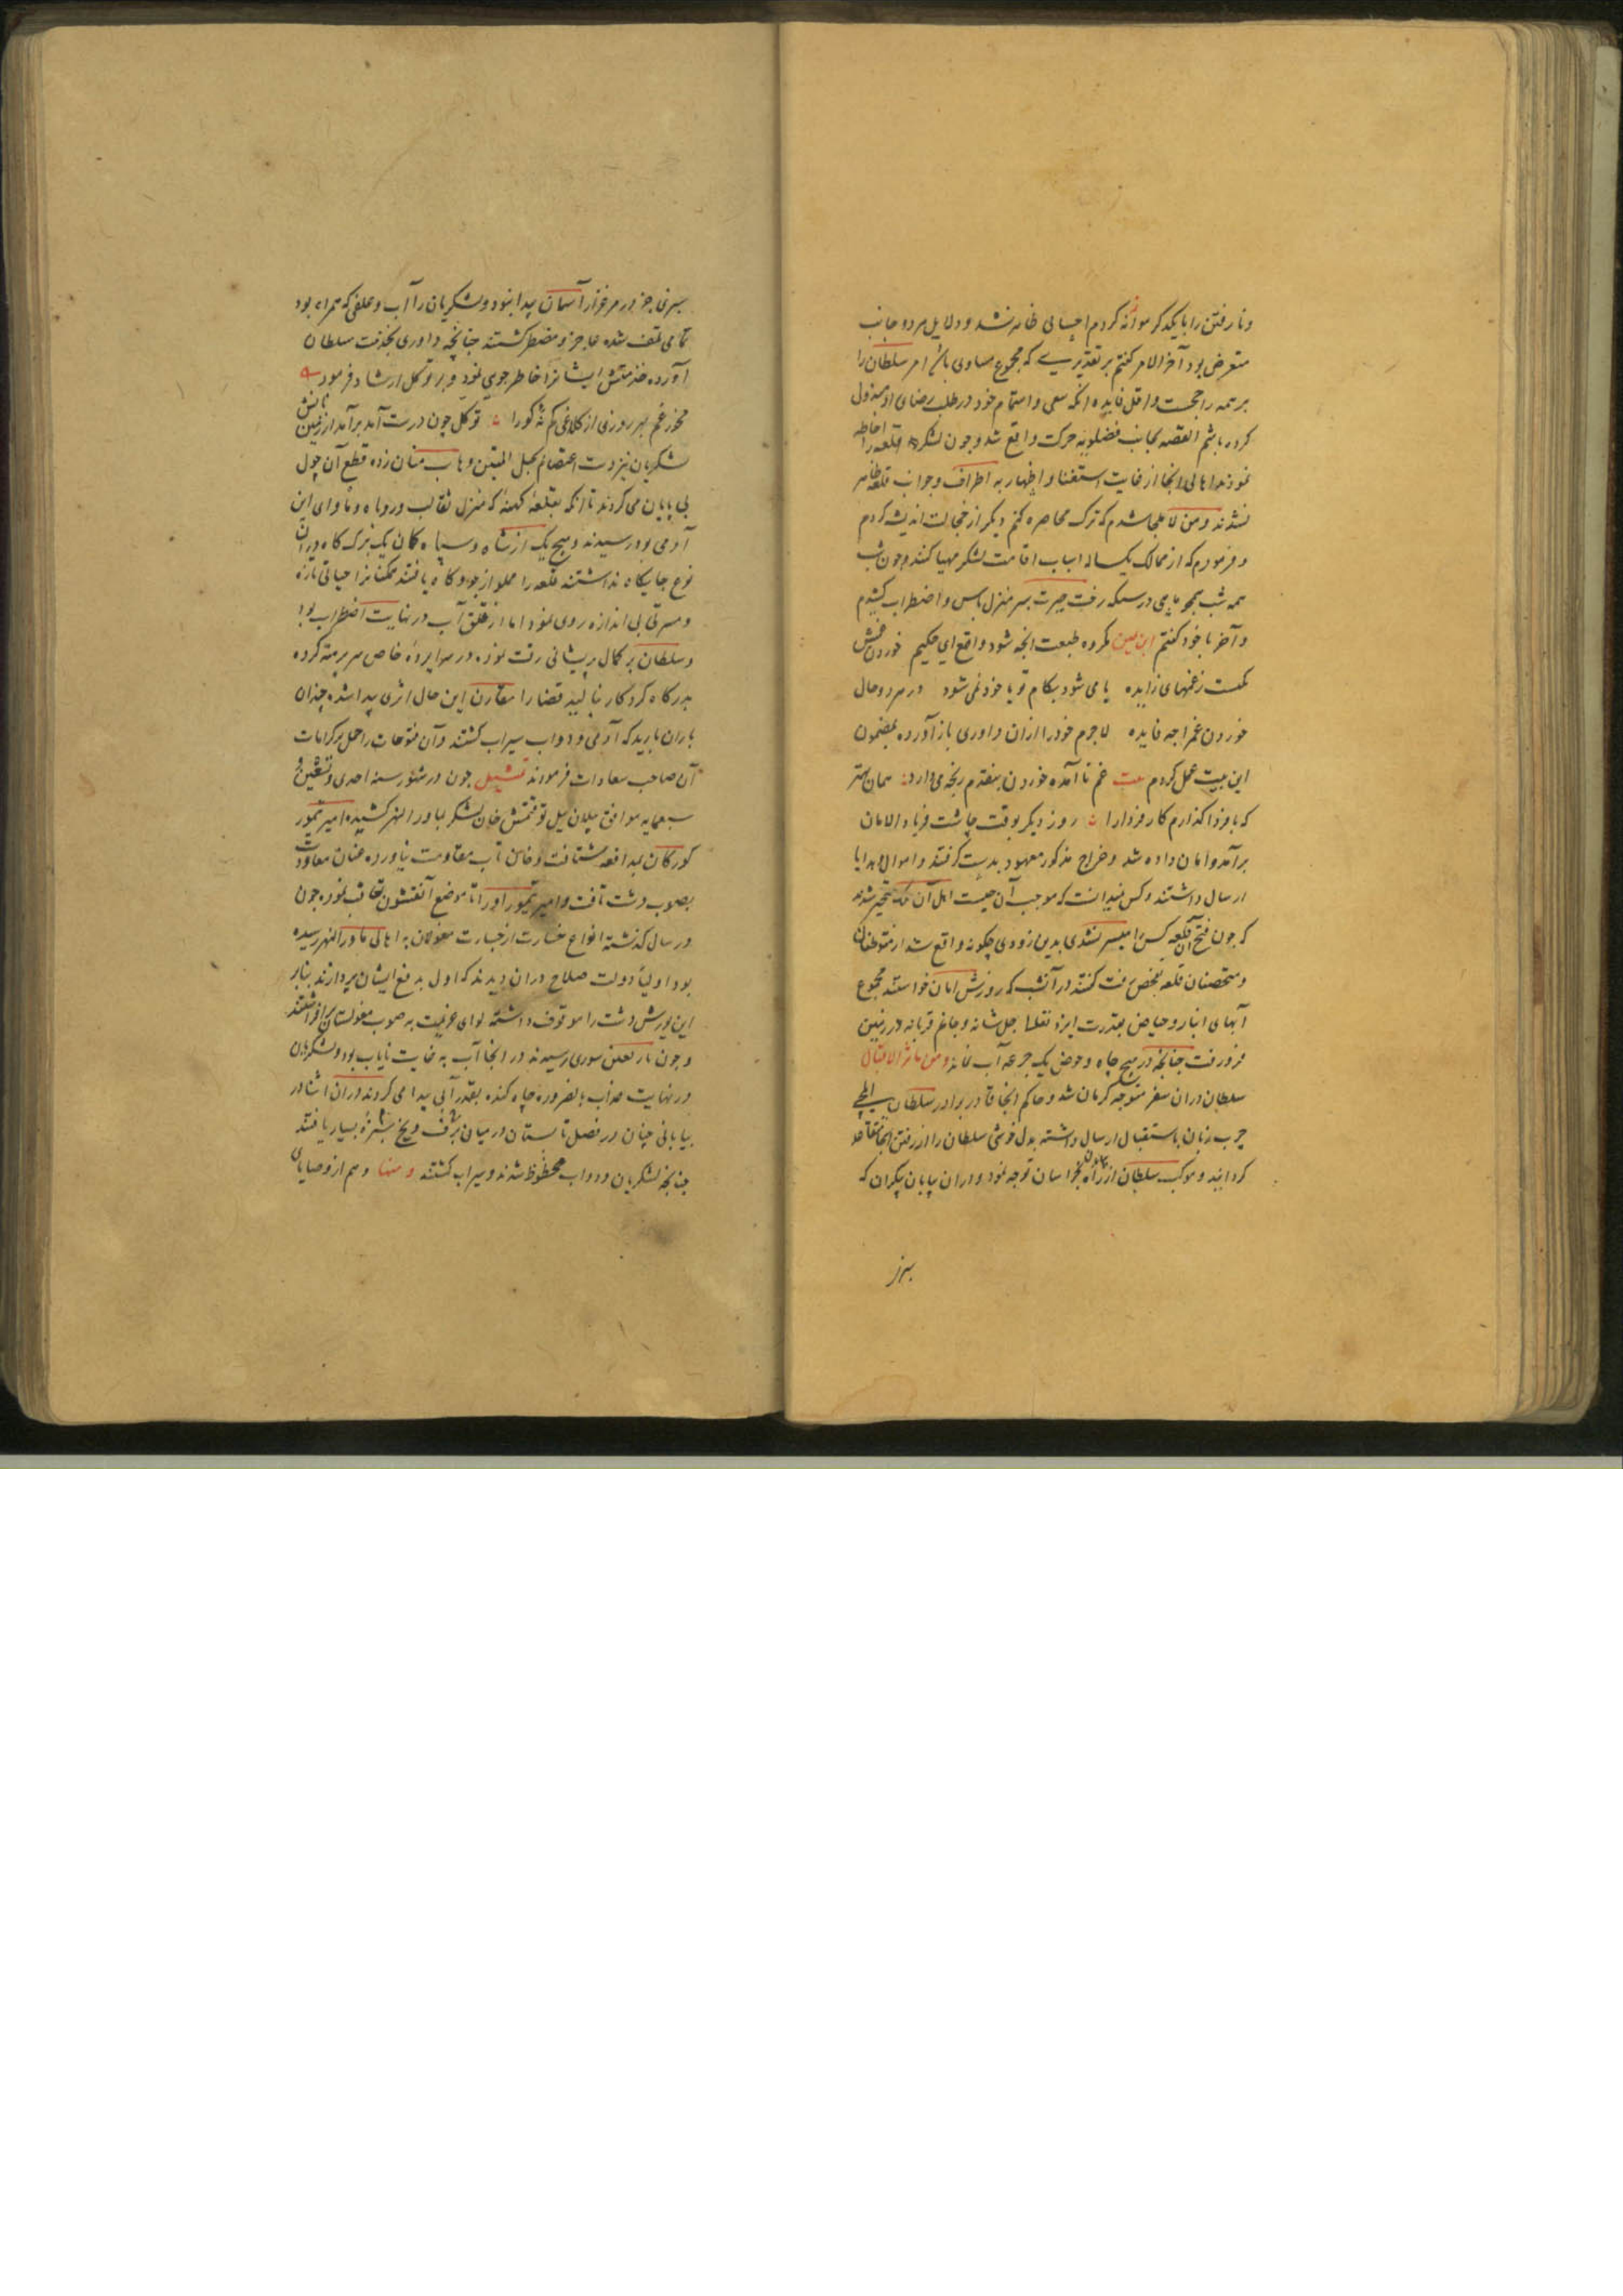 ونا رفتن را با یکدیگر موازنه کردم احسانی ظاهر نشد و دلایل هر دو جانب
متعرض بود آخر الامر کفتم بر تقدیری که مجموع مساوی باشد امر سلطان را
بر همه راجحست و اقل فایده آنکه سعی و اهتمام خود در طلب رضای او مبذول
کرده باشم القصه بجانب فضلویه حرکت واقع شد و چون لشکر قلعه را احاطه
نمودند اهالی انجا از غایت استغنا و اظهار به اطراف و جوانب قلعه ظاهر
نشدند و من لا علاج شدم که ترک محاصره کنم دیگر از خجالت اندیشه کردم
و فرمودم که از ممالک یکساله اسباب اقامت لشکر مهیا کنند و چون شب
همه شب همچو ماهی در سکه رخت حیرت بسر منزل یاس و اضطراب کشیدم
و آخر با خود کفتم ابن یمین مکروه طبعت انچه شود واقع ای حکیم خوردن غمش
نکست زغمهای زایده یا می شود بکام تو یا خود نمی شود در هر دو حال
خوردن غم را چه فایده لاجرم خود را ازان داوری باز آورده بمضمون
این بیت عمل کردم بیت غم نا آمده خوردن بنقدم رنجه می دارد همان بهتر
که با فردا کذارم کار فردا را روز دیگر بوقت چاشت فریاد الامان
برآمد و امان داده شد و خراج مذکور معهود بدست کرفتند و اموال و هدایا
ارسال داشتند و کس نمیدانست که موجب آن چیست اهل آن ملک متحیر شدند
که چون فتح آن قلعه کس را میسر نشدی بدین زودی چکونه واقع شد از متوطنان
و متحصنان قلعه تفحص رفت کفتند در آنشب که روزش امان خواستند مجموع
آبهای انبار و حیاض بقدرت ایزد تعالی جل شانه و جاغم قربانه در زمین
فرو رفت چنانچه در هیچ چاه و حوض یک جرعه آب نماند و من مآثر الاقبال
سلطان دران سفر متوجه کرمان شد و حاکم انجا قادر برادر سلطان ایلچی
چرب زبان باستقبال ارسال داشته بدل خوشی سلطان را از رفتن انجا متقاعد
کردانید و موکب سلطان از راه بیابان بخراسان توجه نمود و دران بیابان بیکران که
بجز
سبزی جز در مرغزار آسمان پیدا نبود و لشکریان را آب و علفی که همراه بود
تمامی تلف شده عاجز و مضطر کشتند چنانچه داوری بخدمت سلطان
آورده حضرتش ایشانرا خاطر جوی نمود و بر توکل ارشاد فرمود
مخور غم بهر روزی از کلاغی کم نه کورا توکل چون درست آمد برآمد از زمین نانش
لشکریان نیز دست اعتصام بحبل المتین وهاب منان زده قطع آن چول
بی پایان می کردند تا آنکه بقلعه کهنه که منزل ثعالب و روباه و ماوای ابن
آدمی بود رسیدند و هیچ یک از شاه و سپاه کمان یک برک کاه دران
نوع جایکاه نداشتند قلعه را مملو از جو و کاه یافتند ممکنانرا حیاتی تازه
و مسرتی بی اندازه روی نمود اما از قلق آب در نهایت اضطراب بود
و سلطان بر کمال پریشانی رقت نموده در سراپرده خاص سر برهنه کرده
بدرکاه کردکار نالید قضا را مقارن این حال ابری پیدا شده چندان
باران بارید که آدمی و دواب سیراب کشتند و آن فتوحات را حمل بر کرامات
آن صاحب سعادات فرمودند تمثیل چون در شهور سنه احدی و تسعین و
سبعمایه موافق ییلان ییل توقتمش خان لشکر بماورالنهر کشیده امیر تیمور
کورکان بمدافعه شتافت و خان تاب مقاومت نیاورده عنان معاودت
بصوب دشت تافت و امیر تیمور اورا تا موضع آنقشون تعاقب نموده چون
در سال کذشته انواع خسارت از جسارت مغولان به اهالی ماورالنهر رسیده
بود اولیا دولت صلاح دران دیدند که اول بدفع ایشان پردازند بنابر
این یورش دشت را موقوف داشته لوای عزیمت به صوب مغولستان برافراشتند
و چون بار نعلن سوری رسیدند در انجا آب به غایت نایاب بود و لشکریان
در نهایت عذاب بالضروره چاه کنده بقدر آبی پیدا می کردند دران اثنا در
بیابانی چنان در فصل تابستان در میان برف و یخ بسیار یافتند
چنانچه لشکریان و دواب محظوظ شدند و سیراب کشتند و منها و هم از وصایای